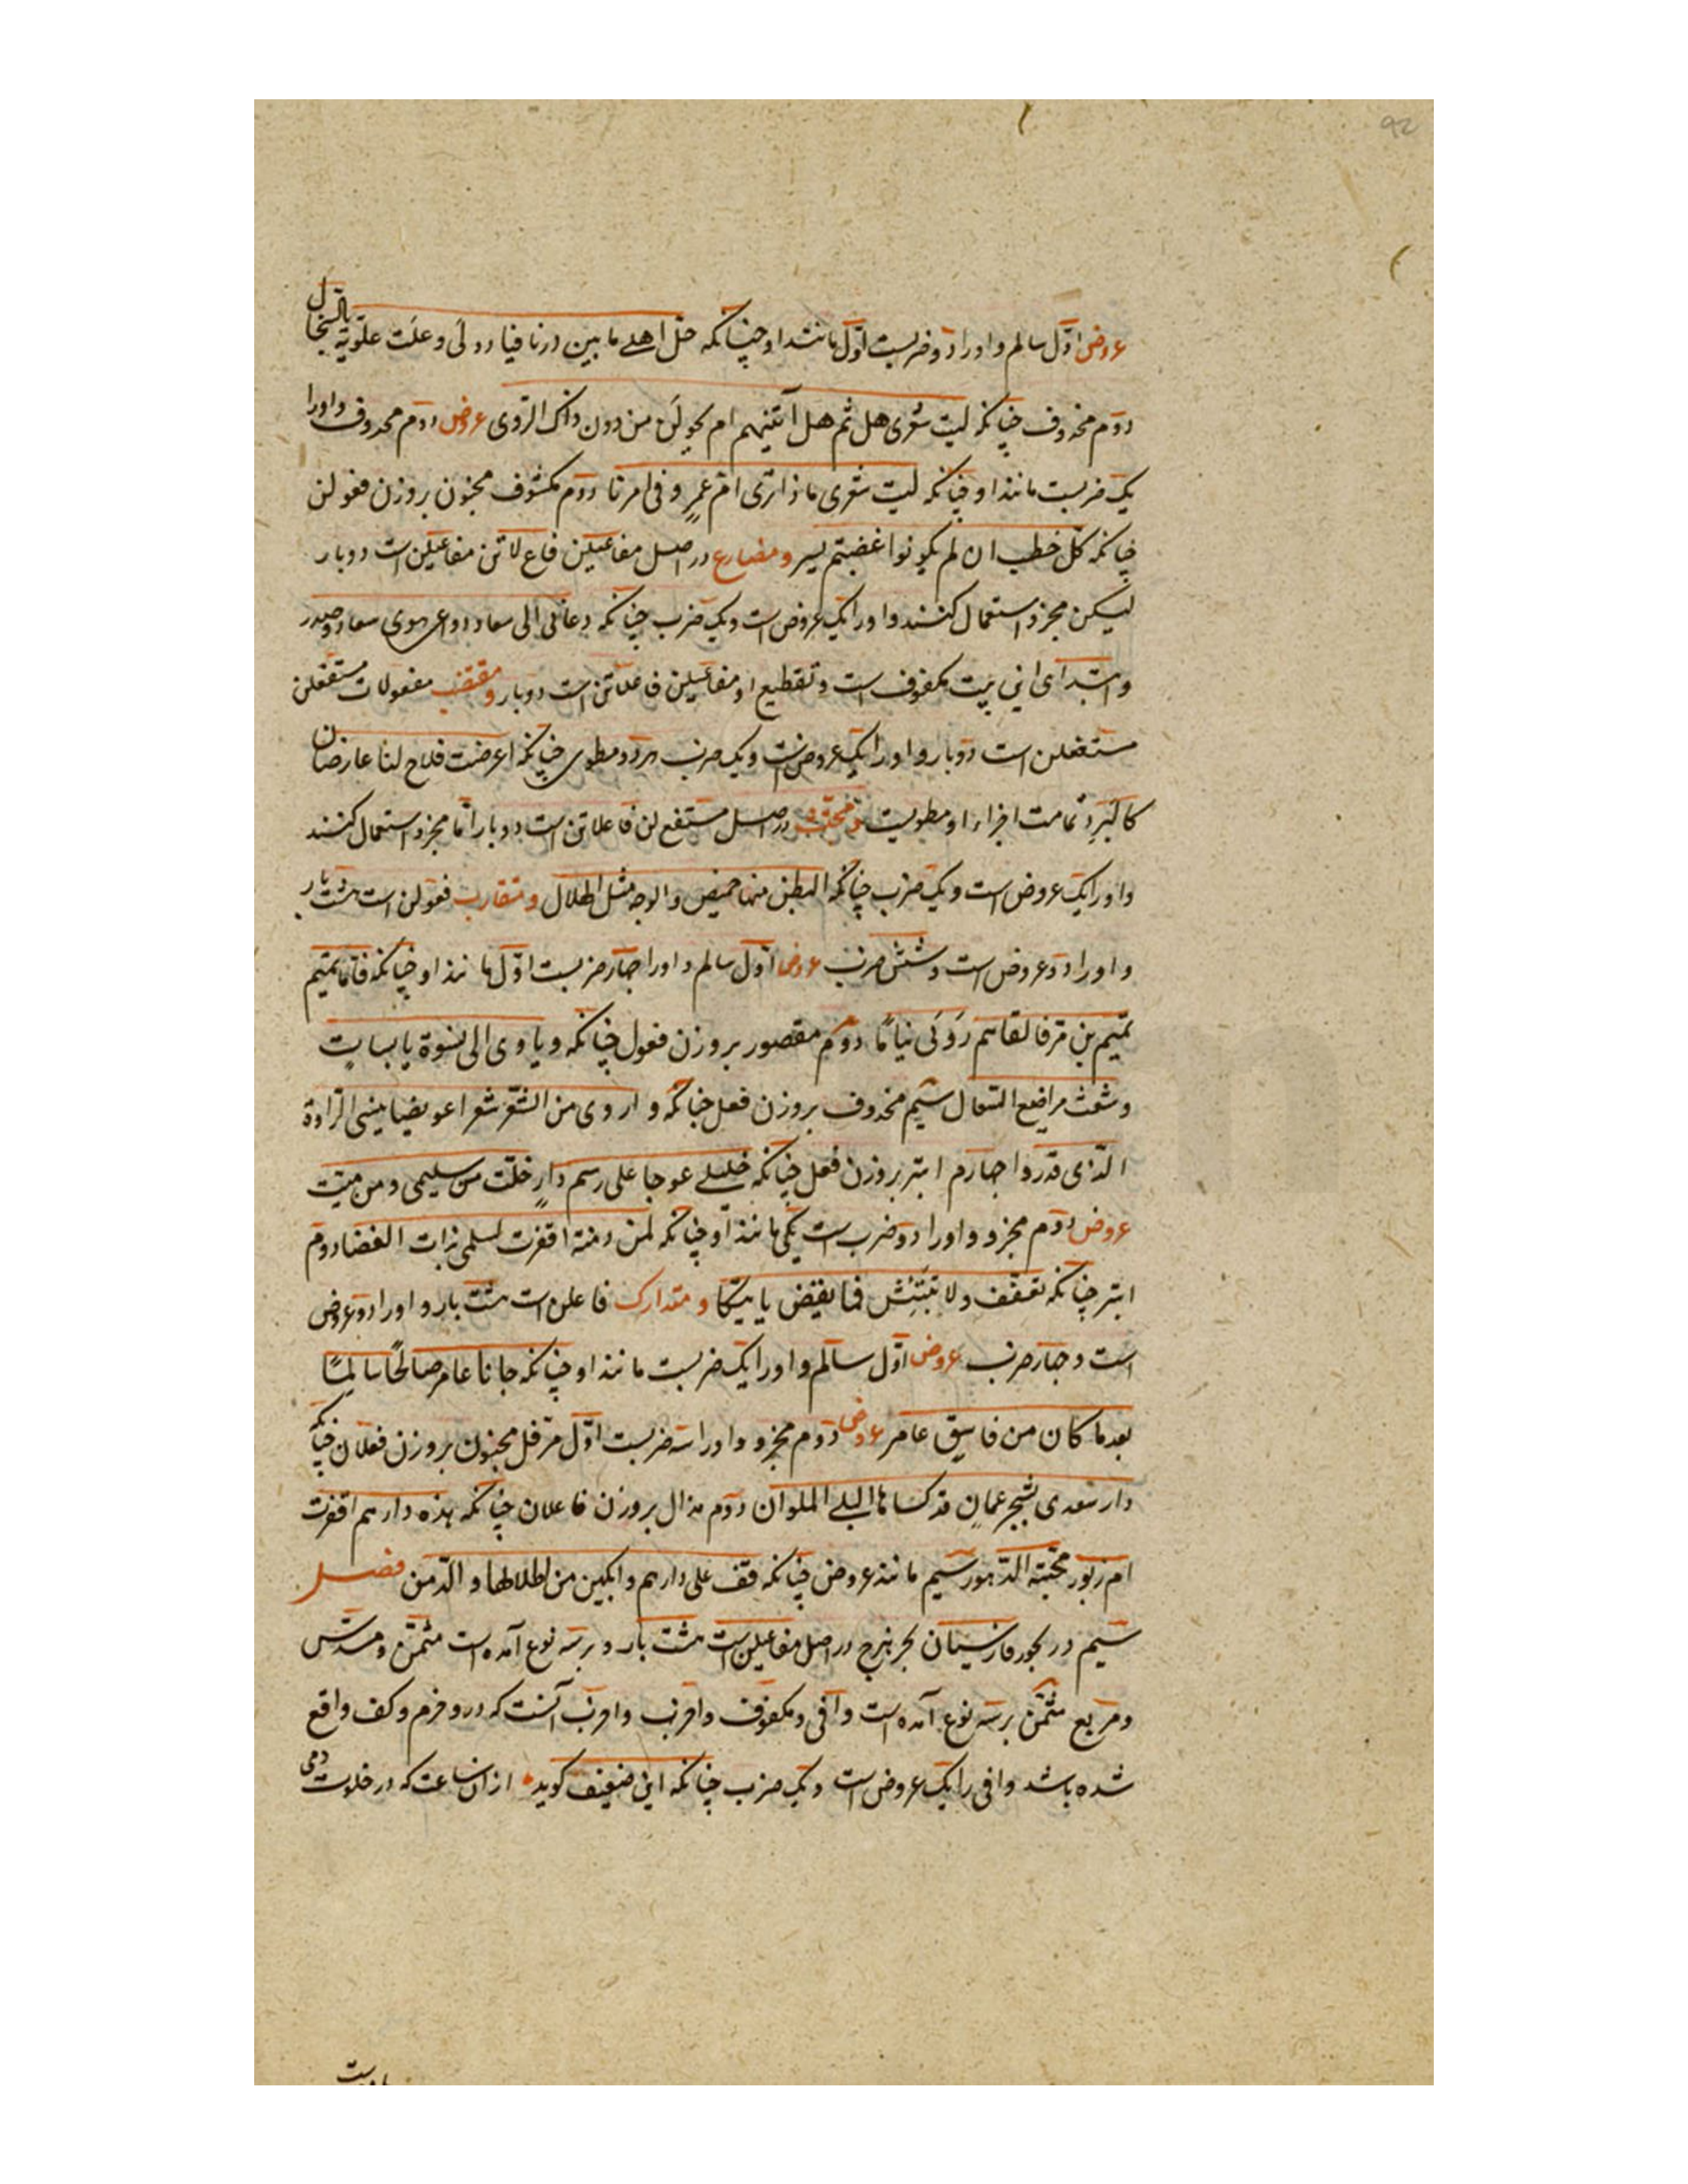 عروض اوّل سالم و او را دو ضربست اوّل مانند او چنانکه حلّ اهلے ما بین درنا فبادولی و علت علویّة بالسخال
دوم محذوف چنانکه لیت شعری هل ثم هل آتینهم ام یحولن من دون ذاک الرّدی عروض دوم محذوف و او را
یک ضربست مانند او چنانکه لیت شعری ماذا تری امّ عمرٍو فی امرنا دوم مکشوف مخبون بر وزن فعولن
چنانکه کلّ خطب ان لم یکونوا غضبتم یسیر و مضارع در اصل مفاعیلن فاع لاتن مفاعیلن است دو بار
لیکن مجزو استعمال کنند و او را یک عروض است و یک ضرب چنانکه دعانی الی سعاد دواعی هوی سعاد و صدر
و ابتدای این بیت مکفوف است و تقطیع او مفاعیلن فاعلاتن است دو بار و مقتضب مفعولات مستفعلن
مستفعلن است دو بار و او را یک عروض است و یک ضرب هر دو مطوی چنانکه اعرضت فلاح لنا عارضان
کالبرد تمامت اجزاء او مطویست و مجتث در اصل مستفع لن فاعلاتن است دو بار امّا مجزو استعمال کنند
و او را یک عروض است و یک ضرب چنانکه البطن منها خمیص و الوجه مثل الهلال و متقارب فعولن است هشت بار
و او را دو عروض است و شش ضرب عروض اوّل سالم و او را چهار ضربست اوّل مانند او چنانکه فامّا تمیم
تمیم بن مرّ فالقاهم رَوْبَی نیامًا دوم مقصور بر وزن فعول چنانکه و یاوی الی نسوة یابسات
و شعث مراضع السعال سیم محذوف بر وزن فعل چنانکه و اروی من الشعر شعرا عویضا ینسی الرواة
الّذی قد رووا چهارم ابتر بر وزن فعل چنانکه خلیلے عوجا علی رسم دارٍ خلت من سلیمی و من میّت
عروض دوم مجزو و او را دو ضرب است یکی مانند او چنانکه لمن دمنة اقفرت لسلمی بذات الغضا دوم
ابتر چنانکه تعفّف و لا تبتئس فما یقض یاتیکا و متدارک فاعلن است هشت بار و او را دو عروض
است و چهار ضرب عروض اوّل سالم و او را یک ضربست مانند او چنانکه جانا عامر صالحًا سالمًا
بعد ما کان من فاسق عامر عروض دوم مجزو و او را سه ضربست اوّل مرفل مخبون بر وزن فعلان چنانکه
دار سعدی بشحر عمان قد کساها البلے الملوان دوم مذال بر وزن فاعلان چنانکه هذه دارهم اقفرت
ام زبور محتها الدّهور سیم مانند عروض چنانکه قف علی دارهم و ابکین من اطلالها و الدّمن فصل
سیم در بحور فارسیان بحر هزج در اصل مفاعیلن است هشت بار و بر سه نوع آمده است مثمّن و مسدّس
و مربع مثمّن بر سه نوع آمده است وافی و مکفوف و اخرب و اخرب آنست که درو خرم و کف واقع
شده باشد وافی را یک عروض است و یک ضرب چنانکه این ضعیف گوید از ان ساعت که در خلوت دمی